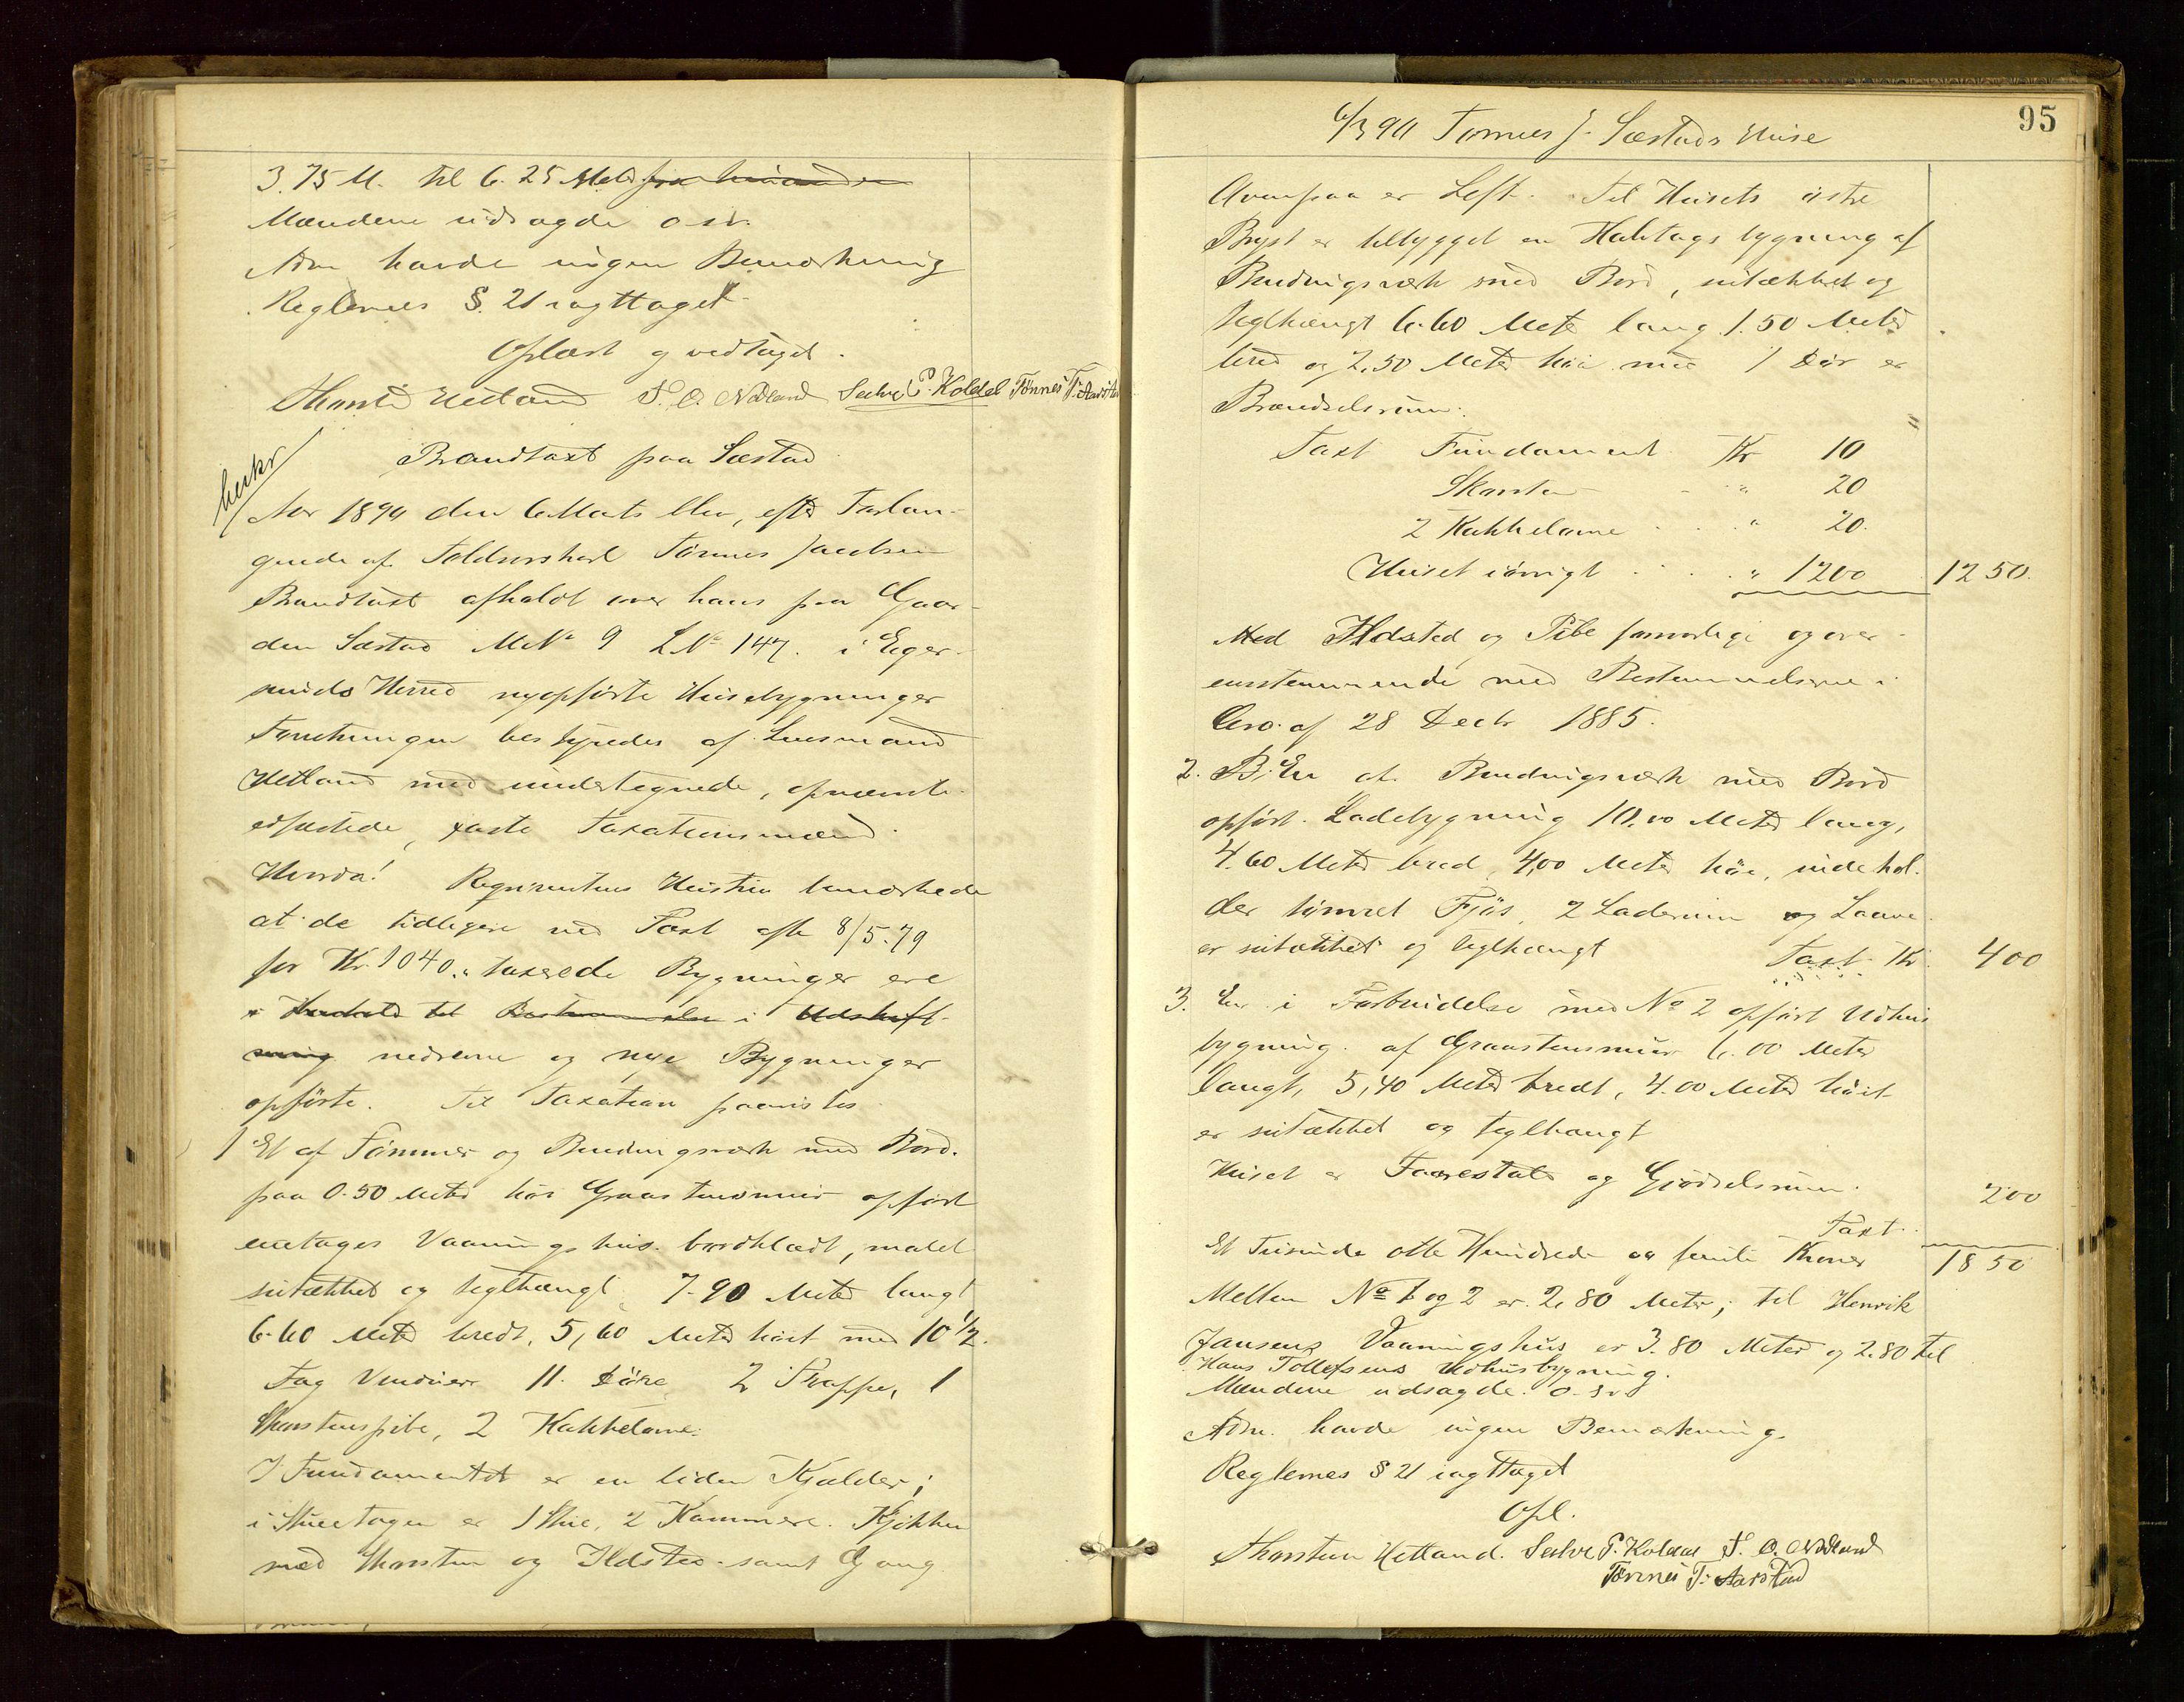 3.75 M. til 6.25 Meter fra hinanden
Mændene udsagde osv.
Adm havde ingen Bemærkning
Reglernes §. 21 iagttaget
Oplæst og vedtaget.
Thorsten Hetland T. O. Nodland Selve P. Koldal Tønnes T. Aarstad
bekr
Brandtaxt paa Sæstad
Aar 1894 den 6 Marts blev, efter Forlan-
gende af Tønnes Jacobsen
Brandtaxt afholdt over hans paa Gaar-
den Sæstad M No 9 L No 147. i Eger-
sunds Herred nyopførte Husebygninger
Forretningen bestyredes af Lensmand
Hetland med undertegnede, opnævnte
edfæstede, faste Taxationsmænd.
Hvorda! Rekvirentens Hustru bemærkede
at de tidligere ved Taxt afh 8/5.79
for Kr. 1040,,, taxerede Bygninger ere
i Henhold til Bestemmelse i Udskift-
ning nedrevne og nye Bygninger
opførte. Til Taxation paavistes
1 Et af Tømmer og Bindingsværk med Bord.
paa 0.50 Meter høi Graastensmur opført
eenetages Vaaningshus. bordklædt, malet
sutækket og teglhængt, 7.90 Meter langt
6.60 Meter bredt, 5,60 Meter høit med 10 1/2.
Fag Vinduer 11. Døre, 2 Trapper, 1
Skorstenspibe, 2 Kakkelovne.
I Fundamentet er en liden Kjælder;
i Stueetagen er 1 Stue, 2 Kammere. Kjøkken
med Skorsten og Ildsted samt Gang
95
6/3 94 Tønnes J. Sæstads Huse
Ovenpaa er Loft. Til Husets østre
Bryst er tilbygget en Halvtagsbygning af
Bindingsværk med Bord, sutækket og
teglhængt 6.60 Meter lang 1.50 Meter
bred og 2,50 Meter høi med 1 Dør er
Brændselsrum.
Taxt Fundament Kr 10
Skorsten " 20
2 Kakkelovne " 20.
Huset iøvrigt " 1200 1250.
Med Ildsted og Pibe forsvarlige og over-
ensstemmende med Bestemmelserne i
Circ. af 28 Decbr 1885.
2. B. En af Bindingsværk med Bord
opført Ladebygning 10.00 Meter lang,
4.60 Meter bred, 4,00 Meter høi, indehol-
der tømret Fjøs, 2 Laderum og Laave
er sutækket og teglhængt Taxt Kr 400
3. En i Forbindelse med No 2 opført Udhus
bygning af Graastensmur 6.00 Meter
langt, 5,40 Meter bredt, 4.00 Meter høit
er sutækket og teglhængt
Huset er Faarestald og Gjødselsrum.
Taxt 200
Et Tusinde otte Hundrede og femti Kroner 1850
Mellem No 1 og 2 er 2,80 Meter; til Henrik
Jansens Vaaningshus er 3.80 Meter og 2.80 til
Hans Tollefsens Udhusbygning.
Mændene udsagde o.s.v
Adm. havde ingen Bemærkning.
Reglernes § 21 iagttaget
Opl.
Thorsten Hetland. Selve P. Koldal T. O. Nodland
Tønnes T. Aarstad